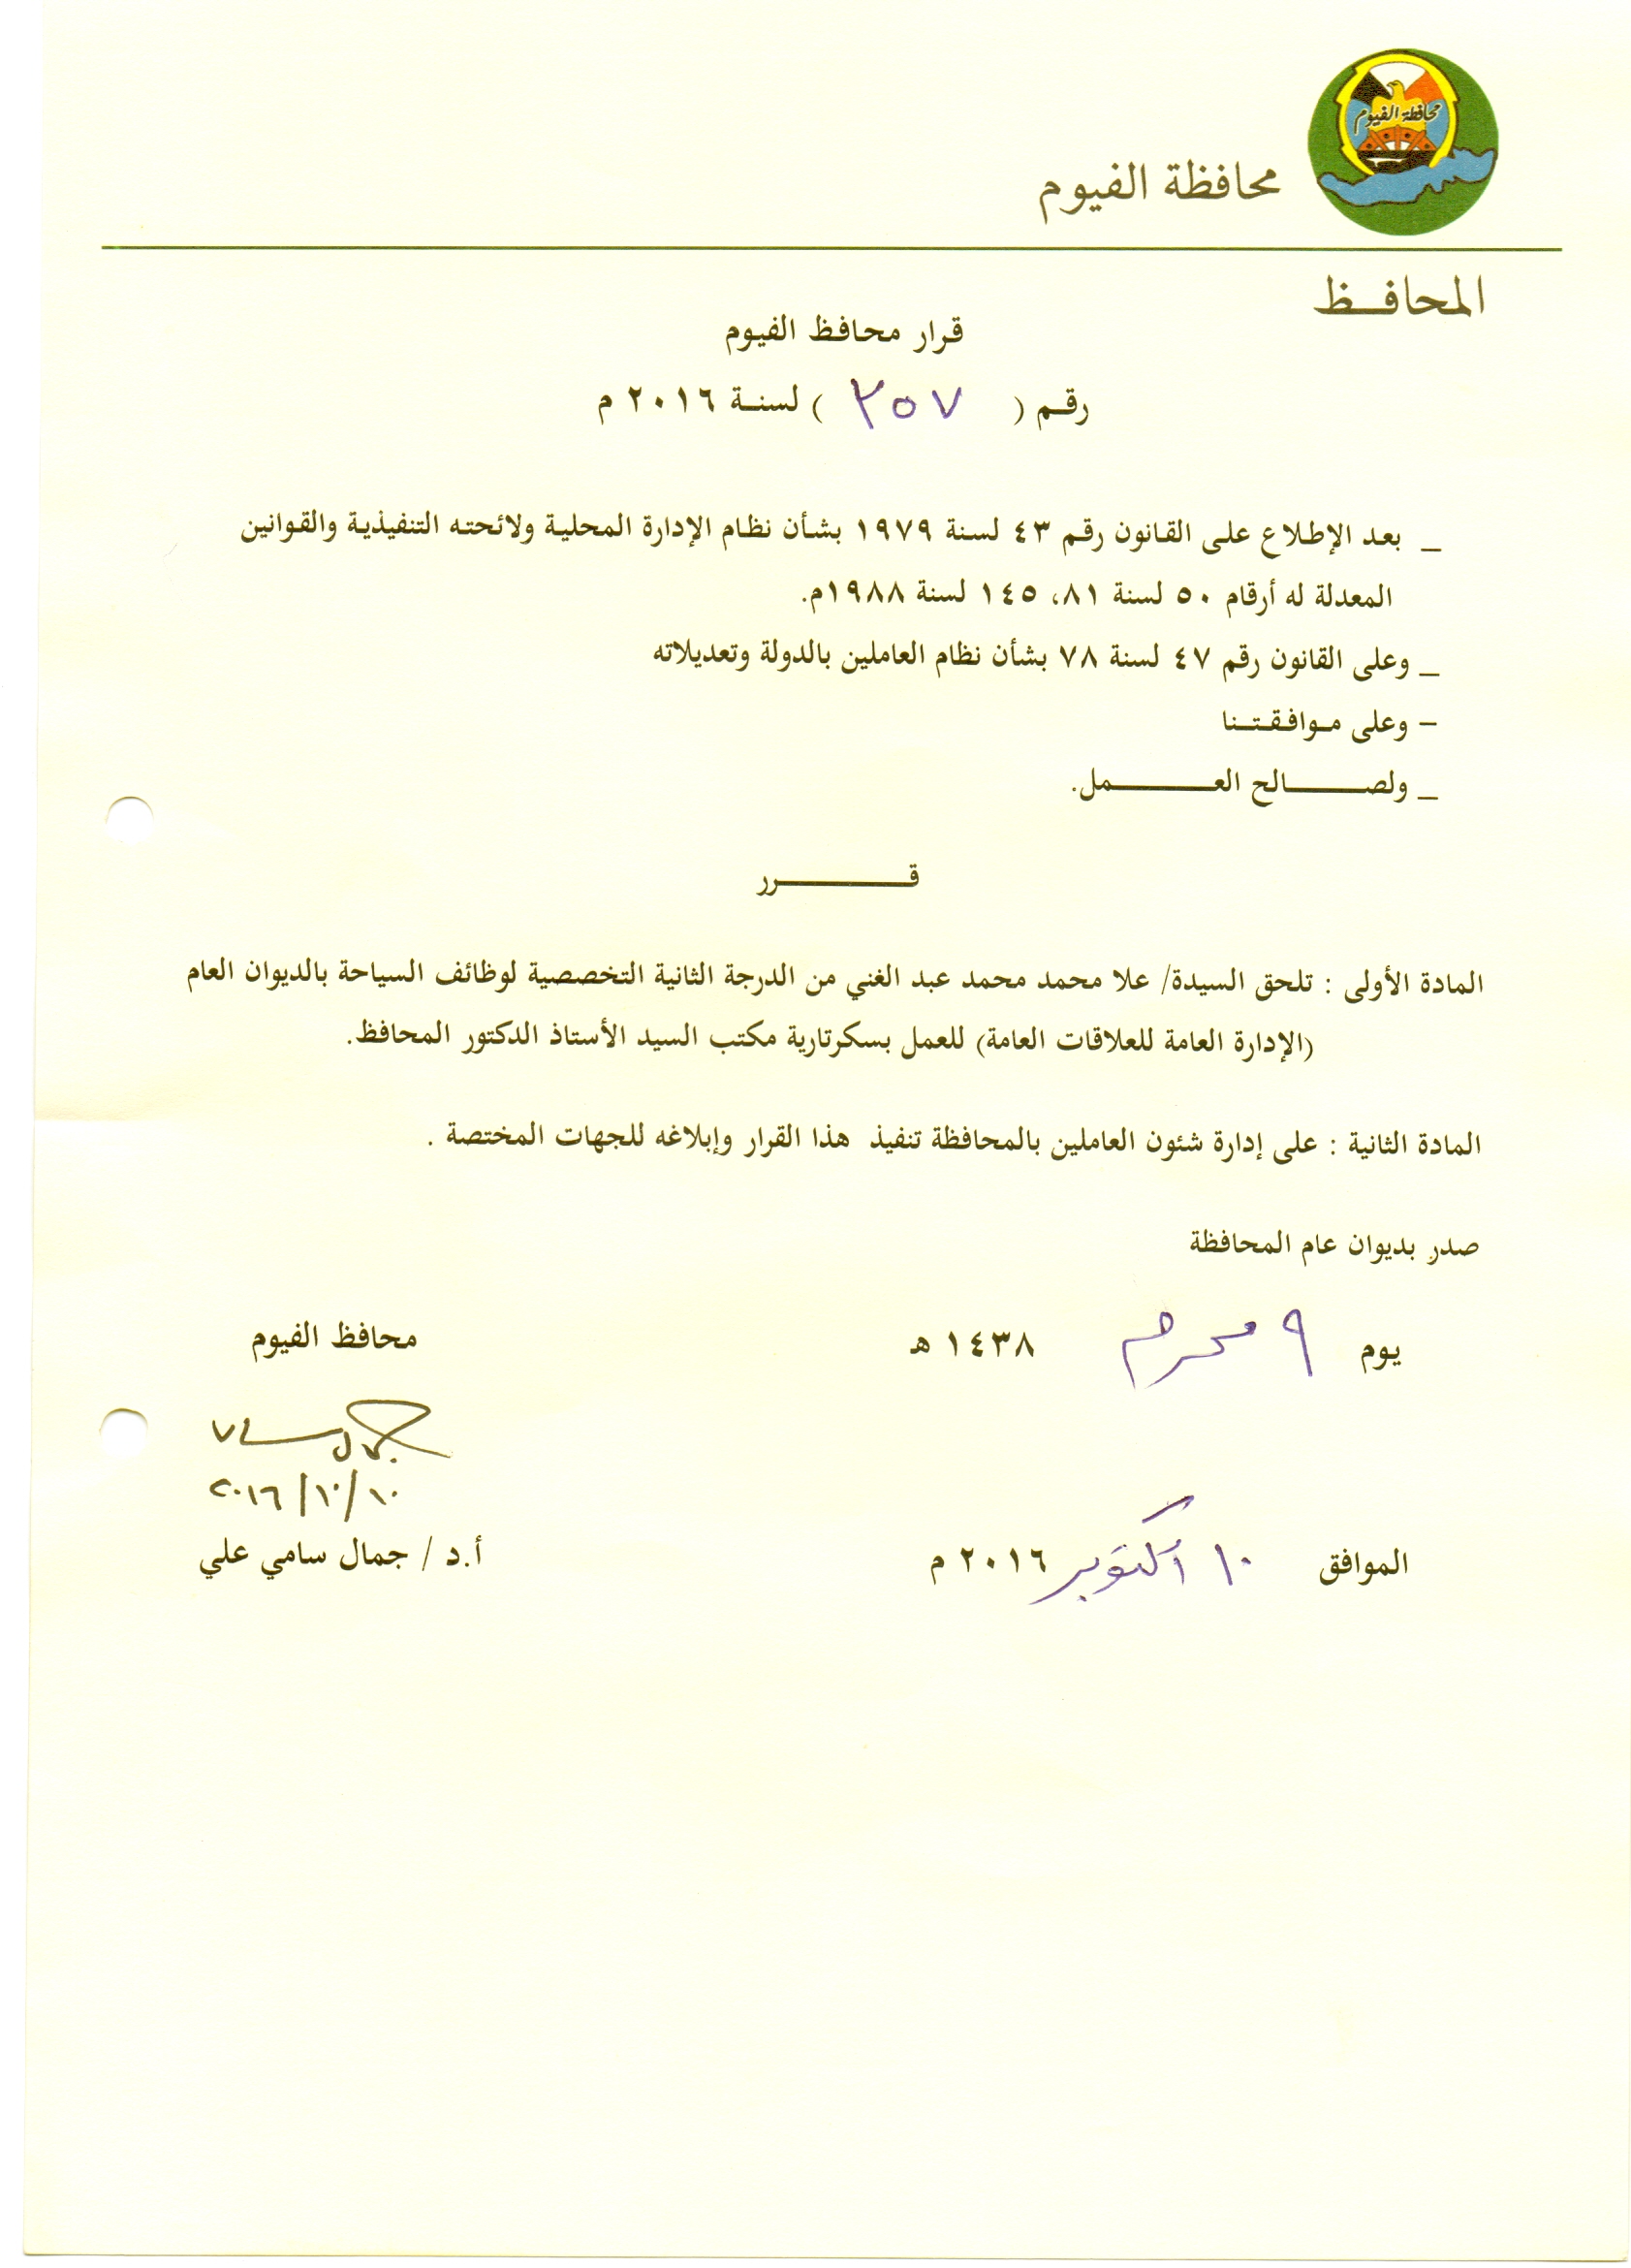 محافظة الفيوم
محافظة الفيوم
المحافظ
قرار محافظ الفيوم
رقم ( ٣٥٧ ) لسنة ٢٠١٦ م
_ بعد الإطلاع على القانون رقم ٤٣ لسنة ١٩٧٩ بشأن نظام الإدارة المحلية ولائحته التنفيذية والقوانين
المعدلة له أرقام ٥٠ لسنة ٨١، ١٤٥ لسنة ١٩٨٨م.
_ وعلى القانون رقم ٤٧ لسنة ٧٨ بشأن نظام العاملين بالدولة وتعديلاته
- وعلى موافقتنا
_ ولصالح العمل.
قرر
المادة الأولى : تلحق السيدة/ علا محمد محمد عبد الغني من الدرجة الثانية التخصصية لوظائف السياحة بالديوان العام
(الإدارة العامة للعلاقات العامة) للعمل بسكرتارية مكتب السيد الأستاذ الدكتور المحافظ.
المادة الثانية : على إدارة شئون العاملين بالمحافظة تنفيذ هذا القرار وإبلاغه للجهات المختصة .
صدر بديوان عام المحافظة
يوم ٩ محرم ١٤٣٨ هـ
محافظ الفيوم
٢٠١٦/١٠/١٠
الموافق ١٠ أكتوبر ٢٠١٦ م
أ.د / جمال سامي علي